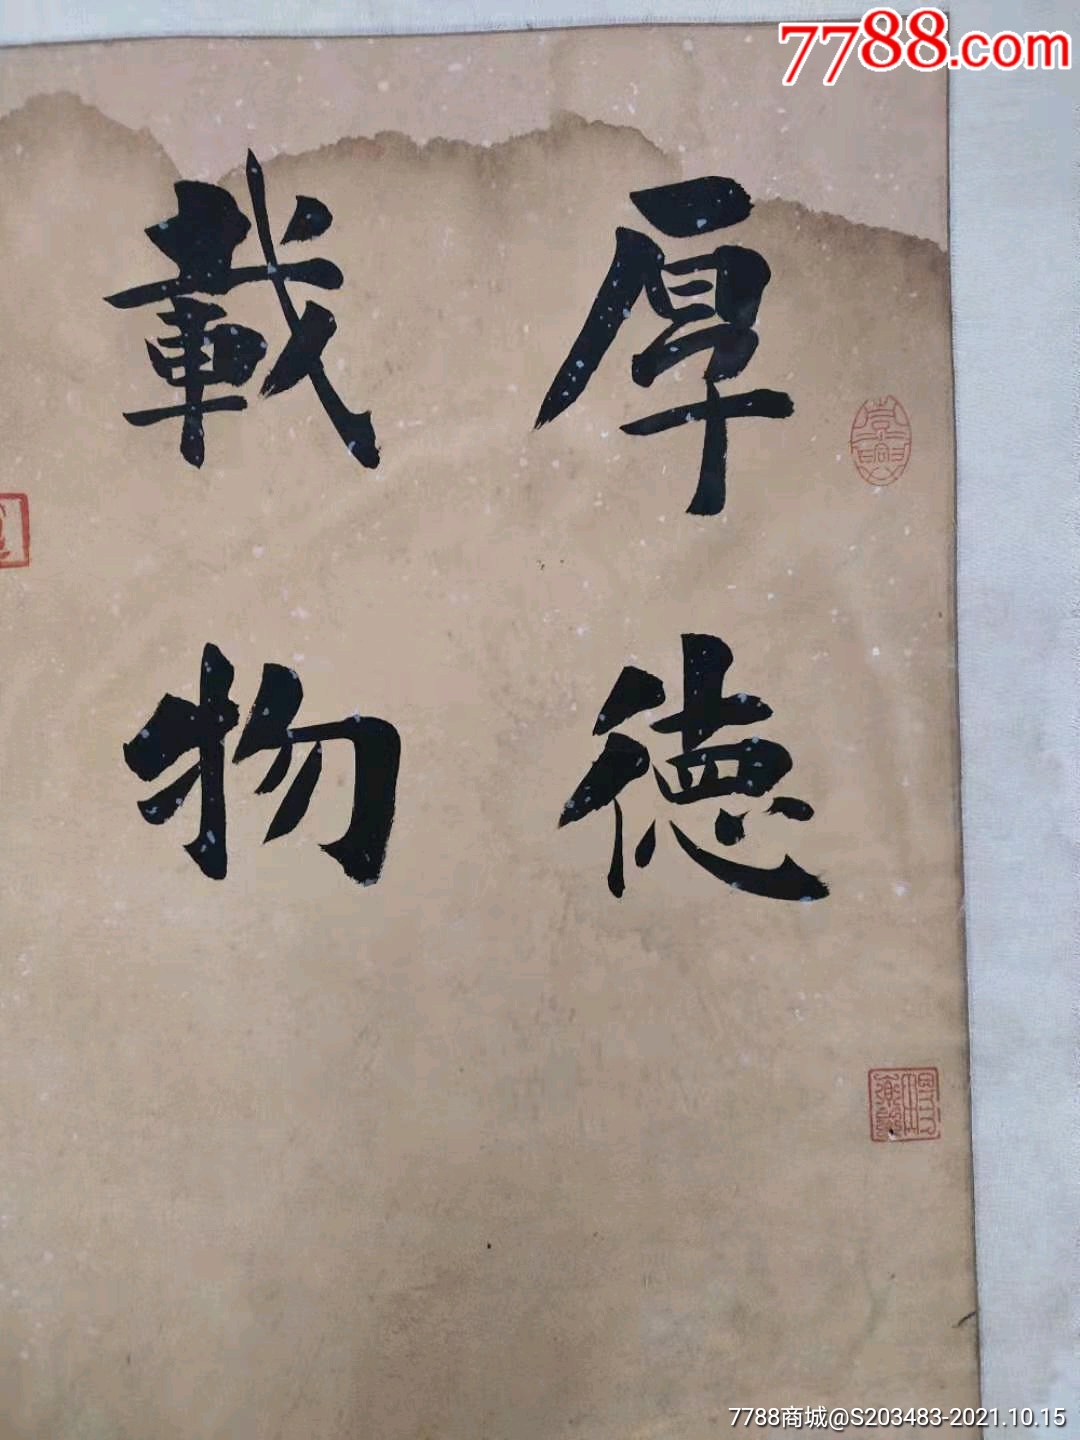 7788.com
厚德
載物
7788商城@S203483-2021.10.15